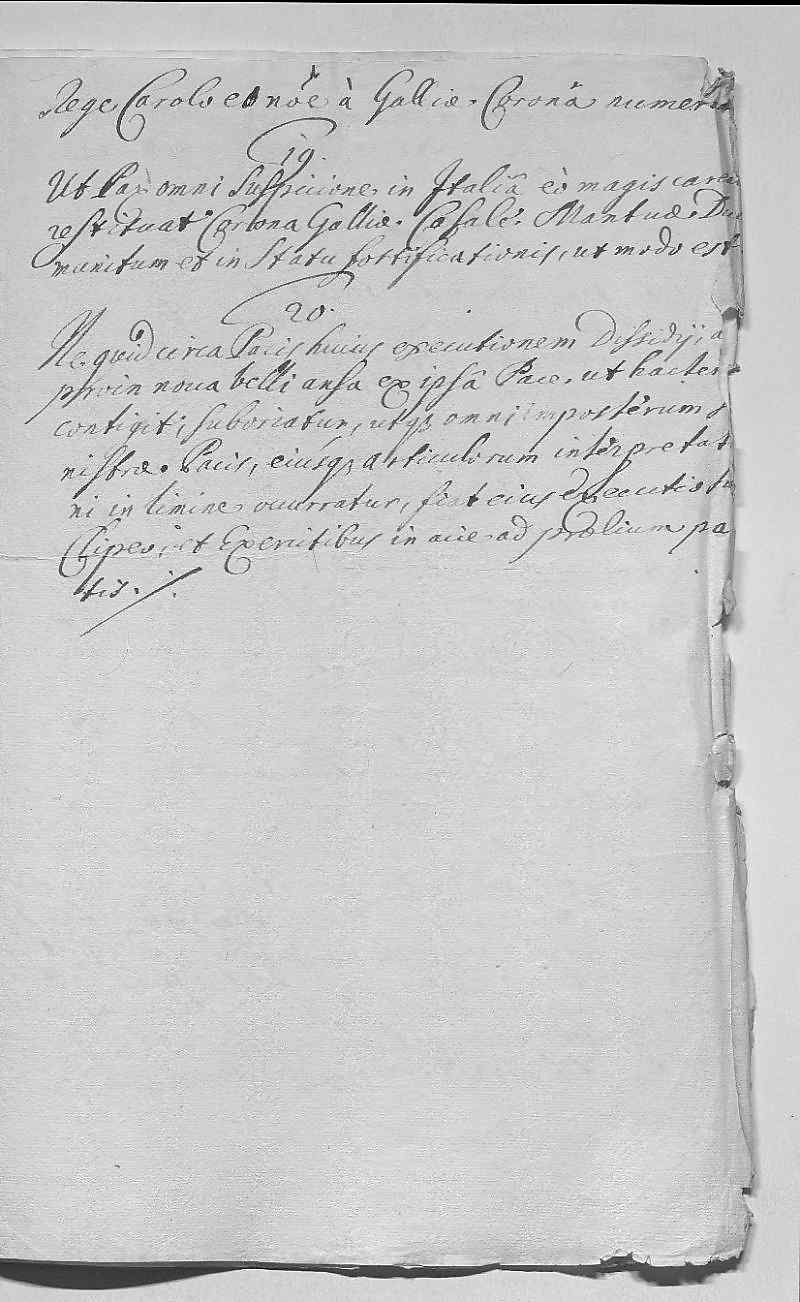 Rege Carolo eo nõe à Galliæ Coronâ numer
19.
Ut Pax omni suspicione in Italiâ eò magis carea
restituat Corona Galliæ Casale Mantuæ Du
munitum et in statu fortificationis, ut modo est
20.
Ne quid circa Pacis huius executionem Dissidij, a
proin noua belli ansa ex ipsâ Pace, ut hacten
contigit, suboriatur, utq; omni imposterum s
nistræ Pacis, eiusq; articulorum interpretat
ni in limine ocurratur, fiat eius Executio su
Clipeo, et Exercitibus in acie ad prælium pa
tis ./.